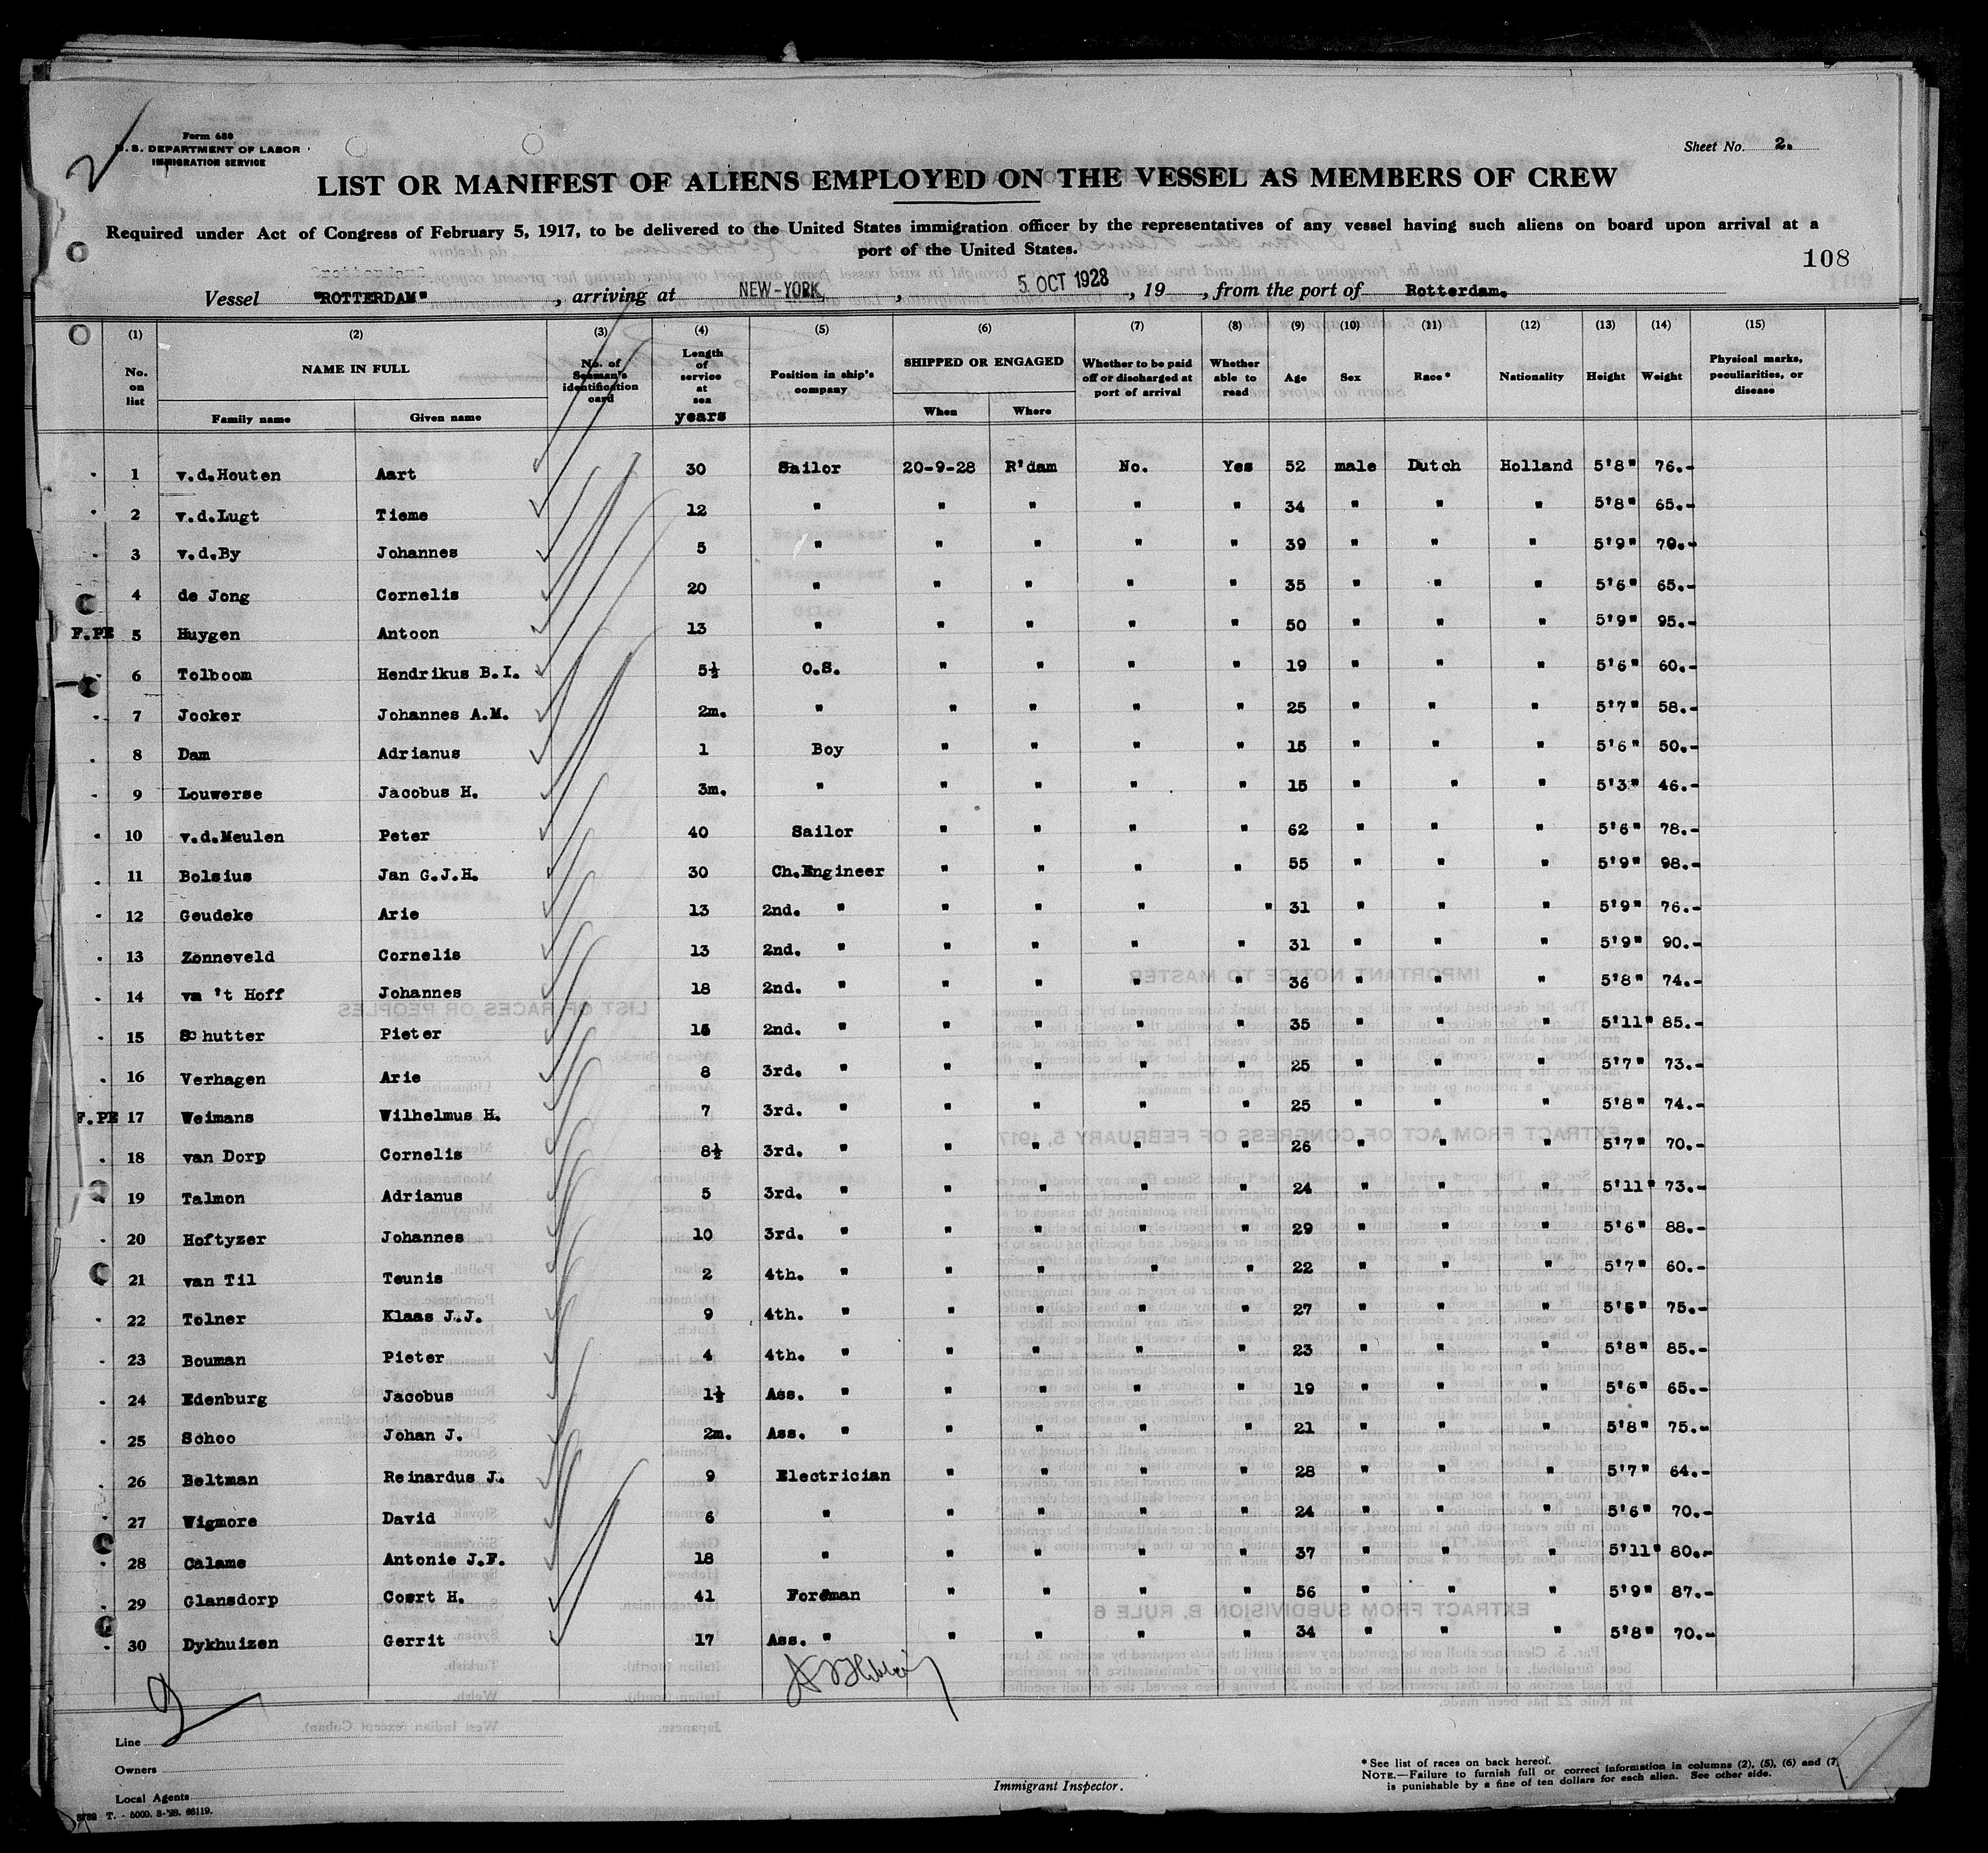 Form 680
U. S. DEPARTMENT OF LABOR
IMMIGRATION SERVICE
Sheet No. 2.
LIST OR MANIFEST OF ALIENS EMPLOYED ON THE VESSEL AS MEMBERS OF CREW
Required under Act of Congress of February 5, 1917, to be delivered to the United States immigration officer by the representatives of any vessel having such aliens on board upon arrival at a
port of the United States.
108
Vessel "ROTTERDAM", arriving at NEW-YORK, 5 OCT 1928, 19 , from the port of Rotterdam.
(1) (2) (3) (4) (5) (6) (7) (8) (9) (10) (11) (12) (13) (14) (15)
No. on list NAME IN FULL Family name Given name No. of Seaman's identification card Length of service at sea years Position in ship's company SHIPPED OR ENGAGED When Where Whether to be paid off or discharged at port of arrival Whether able to read Age Sex Race* Nationality Height Weight Physical marks, peculiarities, or disease
1 v.d.Houten Aart 30 Sailor 20-9-28 R'dam No. Yes 52 male Dutch Holland 5'8" 76.-
2 v.d.Lugt Tieme 12 " " " " " 34 " " " 5'8" 65.-
3 v.d.By Johannes 5 " " " " " 39 " " " 5'9" 70.-
4 de Jong Cornelis 20 " " " " " 35 " " " 5'6" 65.-
F.PE 5 Huygen Antoon 13 " " " " " 50 " " " 5'9" 95.-
6 Tolboom Hendrikus B.I. 5½ O.S. " " " " 19 " " " 5'6" 60.-
7 Jocker Johannes A.M. 2m. " " " " " 25 " " " 5'7" 58.-
8 Dam Adrianus 1 Boy " " " " 15 " " " 5'6" 50.-
9 Louwerse Jacobus H. 3m. " " " " " 15 " " " 5'3" 46.-
10 v.d.Meulen Peter 40 Sailor " " " " 62 " " " 5'6" 78.-
11 Bolsius Jan G.J.H. 30 Ch.Engineer " " " " 55 " " " 5'9" 98.-
12 Geudeke Arie 13 2nd. " " " " " 31 " " " 5'9" 76.-
13 Zonneveld Cornelis 13 2nd. " " " " " 31 " " " 5'9" 90.-
14 va 't Hoff Johannes 18 2nd. " " " " " 36 " " " 5'8" 74.-
15 Schutter Pieter 15 2nd. " " " " " 35 " " " 5'11" 85.-
16 Verhagen Arie 8 3rd. " " " " " 25 " " " 5'7" 73.-
F.PE 17 Weimans Wilhelmus H. 7 3rd. " " " " " 25 " " " 5'8" 74.-
18 van Dorp Cornelis 8½ 3rd. " " " " " 26 " " " 5'7" 70.-
19 Talmon Adrianus 5 3rd. " " " " " 24 " " " 5'11" 73.-
20 Hoftyzer Johannes 10 3rd. " " " " " 29 " " " 5'6" 88.-
21 van Til Teunis 2 4th. " " " " " 22 " " " 5'7" 60.-
22 Tolner Klaas J.J. 9 4th. " " " " " 27 " " " 5'6" 75.-
23 Bouman Pieter 4 4th. " " " " " 23 " " " 5'8" 85.-
24 Edenburg Jacobus 1½ Ass. " " " " " 19 " " " 5'6" 65.-
25 Schoo Johan J. 2m. Ass. " " " " " 21 " " " 5'8" 75.-
26 Beltman Reinardus J. 9 Electrician " " " " 28 " " " 5'7" 64.-
27 Wigmore David 6 " " " " " 24 " " " 5'6" 70.-
28 Calame Antonie J.F. 18 " " " " " 37 " " " 5'11" 80.-
29 Glansdorp Coert H. 41 Foreman " " " " 56 " " " 5'9" 87.-
30 Dykhuizen Gerrit 17 Ass. " " " " " 34 " " " 5'8" 70.-
Line
Owners
Local Agents
Immigrant Inspector.
* See list of races on back hereof.
NOTE.—Failure to furnish full or correct information in columns (2), (5), (6) and (7)
is punishable by a fine of ten dollars for each alien. See other side.
T. - 5000. 8-'28. 66119.